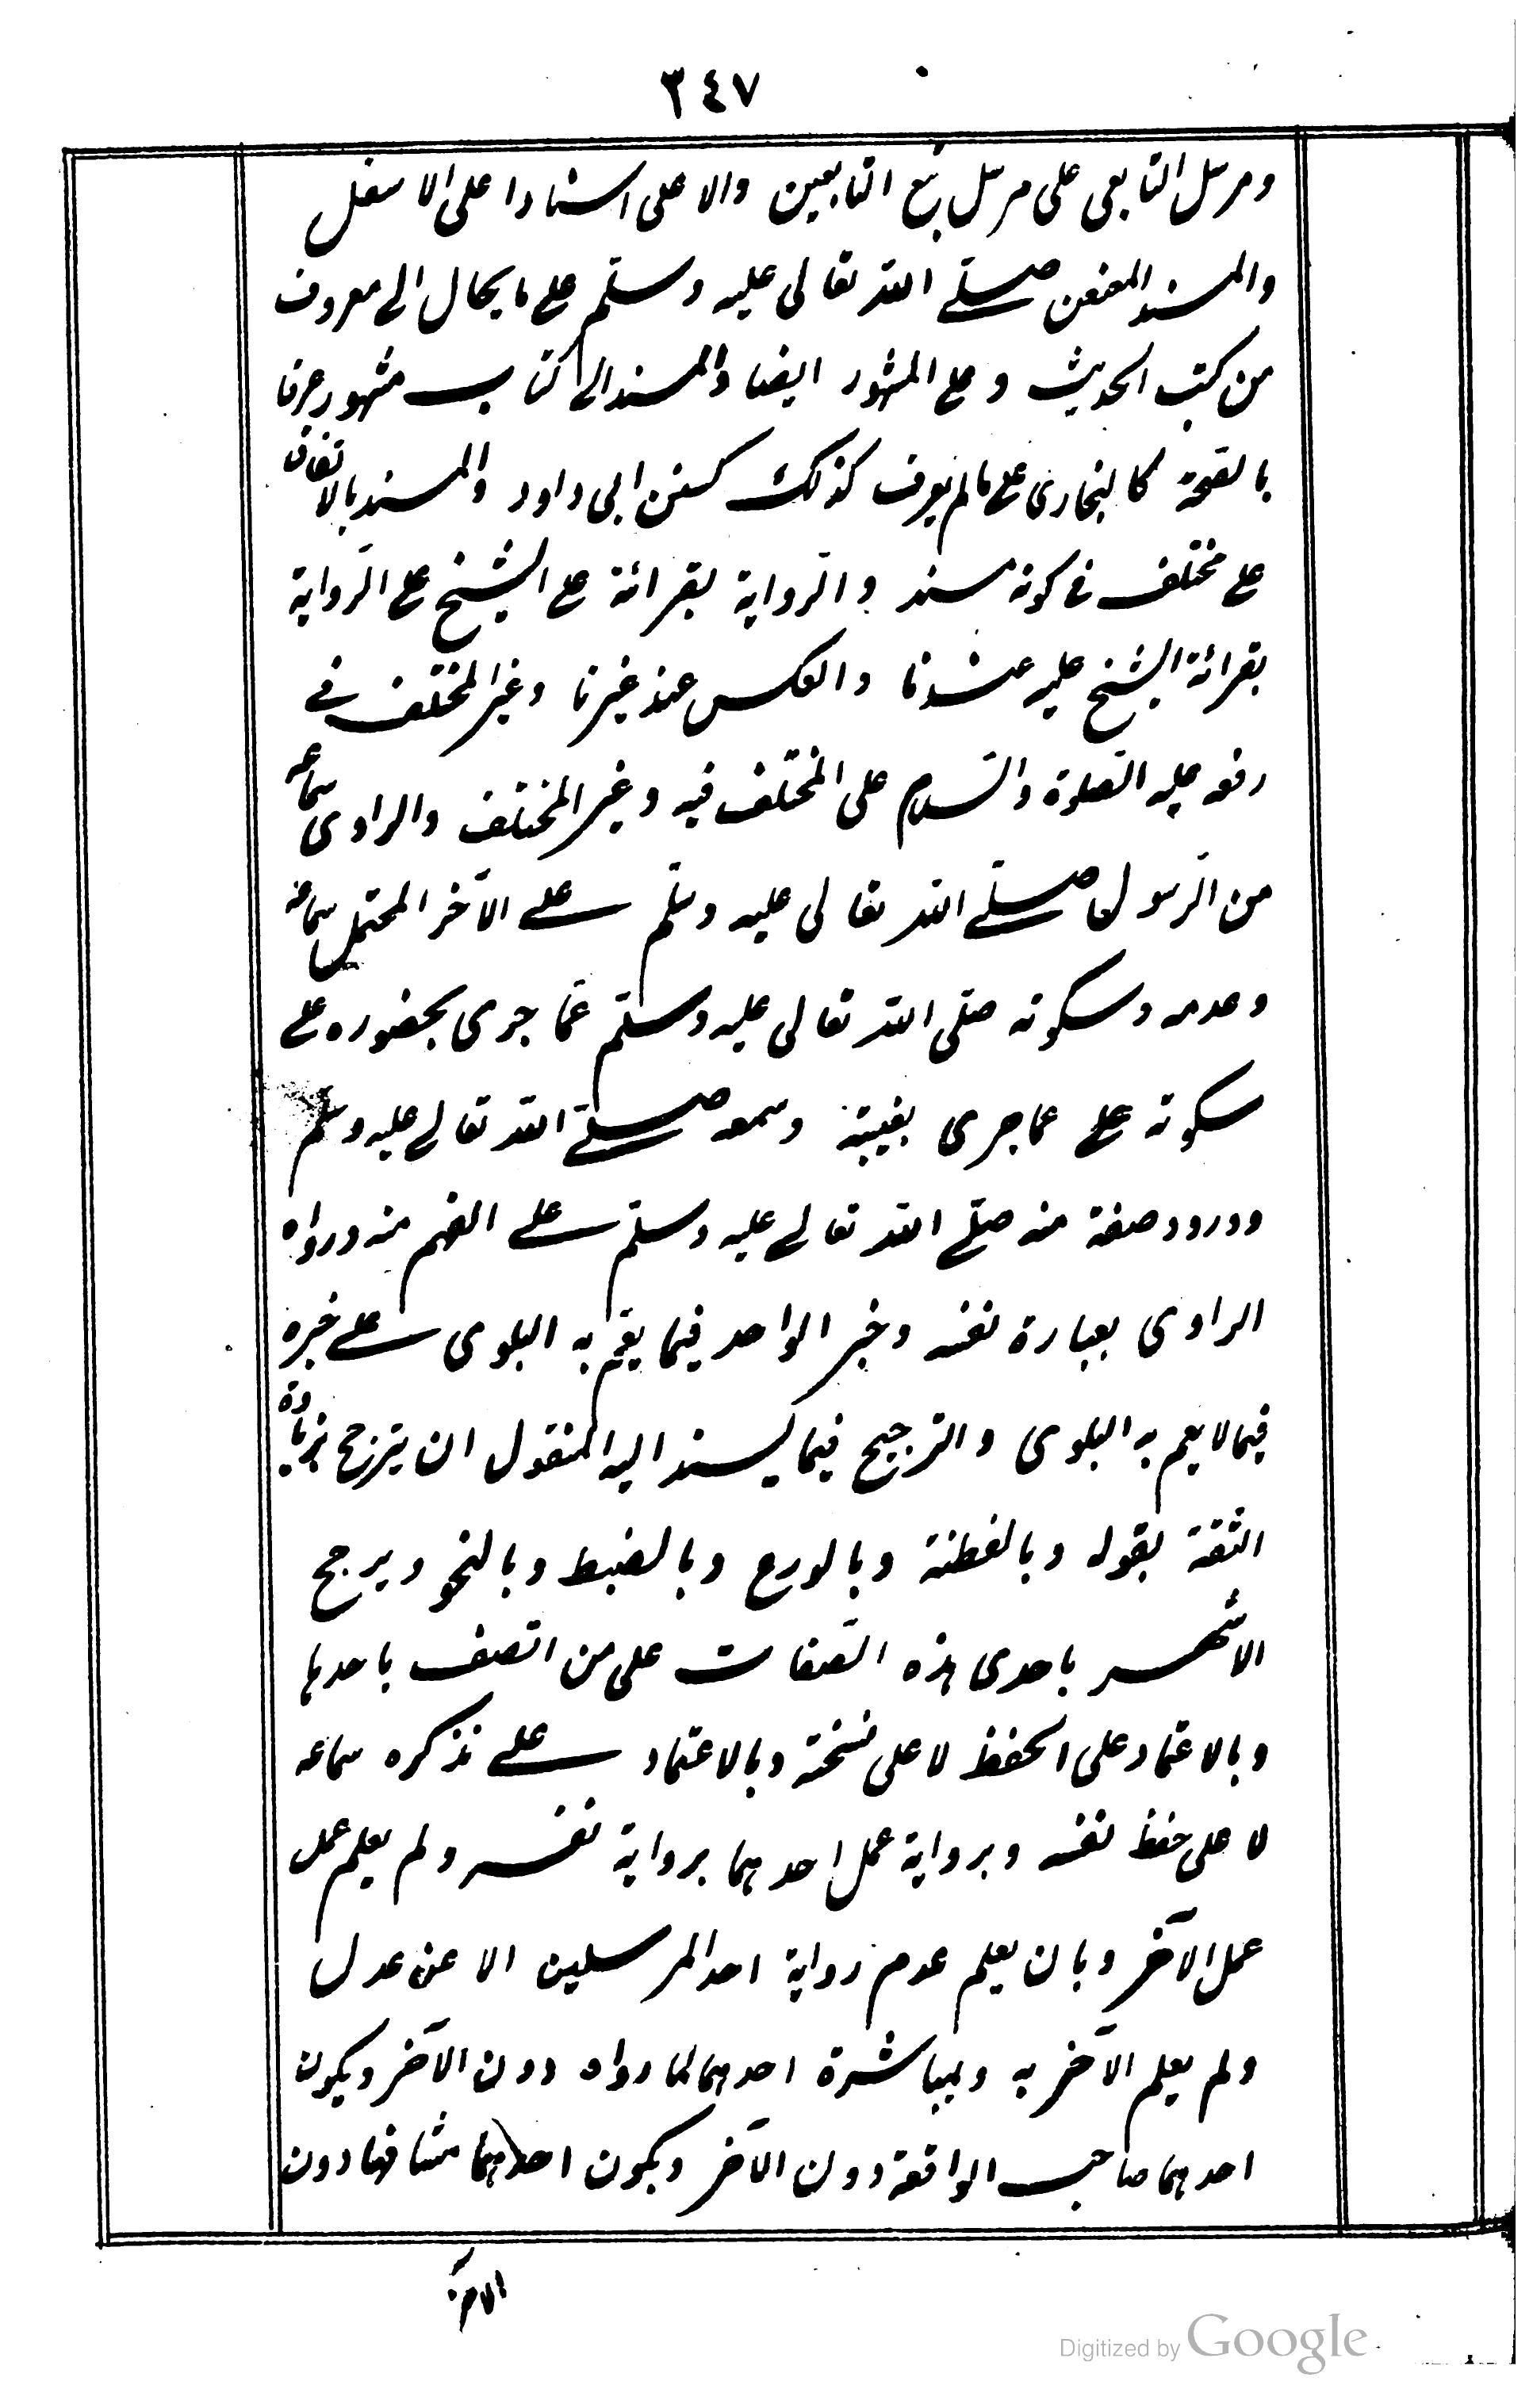 ٣٤٧
ومرسل التابعى على مرسل تبع التابعين والاعلى اسنادا على الاسفل
والمسند المعنعن صلى الله تعالى عليه وسلم على ما يحال الى معروف
من كتب الحديث وعلى المشهور ايضا والمسند الى كتاب مشهور عرفا
بالصحة كالبخارى على ما لم يعرف كذلك كسنن ابى داود والمسند بالاتفاق
على مختلف فى كونه مسند والرواية بقرائة على الشيخ على الرواية
بقرائة الشيخ عليه عندنا والعكس عند غيرنا وغير المختلف فى
رفعه عليه الصلوة والسلام على المختلف فيه وغير المختلف والراوى سماعه
من الرسول صلى الله تعالى عليه وسلم على الآخر المحتمل سماعه
وعدمه وسكوته صلى الله تعالى عليه وسلم عما جرى بحضوره على
سكوته على عما جرى بغيبته وسمعه صلى الله تعالى عليه وسلم
وورود صفة منه صلى الله تعالى عليه وسلم على الفهم منه ورواه
الراوى بعبارة نفسه وخبر الواحد فيما يعم به البلوى على خبره
فيما لا يعم به البلوى والترجيح فيما يسند اليه المنقول ان يترجح بزيادة
الثقة بقوله وبالفطنة وبالورع وبالضبط وبالنحو ويرجح
الاشهر باحدى هذه الصفات على من اتصف باحدها
وبالاعتماد على الحفظ لا على نسخته وبالاعتماد على تذكره سماعه
لا على حفظ نفسه وبرواية عمل احدهما برواية نفسه ولم يعلم عمل
عمل الآخر وبان يعلم عدم رواية احد المرسلين الا عن عدل
ولم يعلم الآخر به وبمباشرة احدهما لما رواه دون الآخر وبكون
احدهما صاحب الواقعة دون الآخر وبكون احدهما مشافها دون
الآخر
Digitized by Google